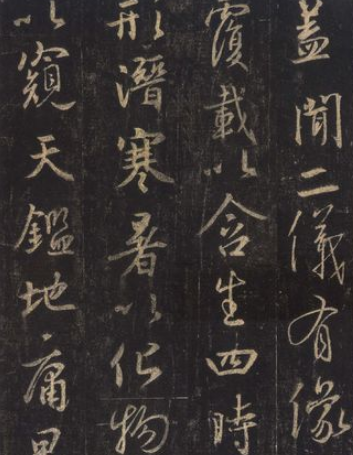 蓋聞二儀有像
覆載以含生四時
形潛寒暑以化物
以窺天鑑地庸